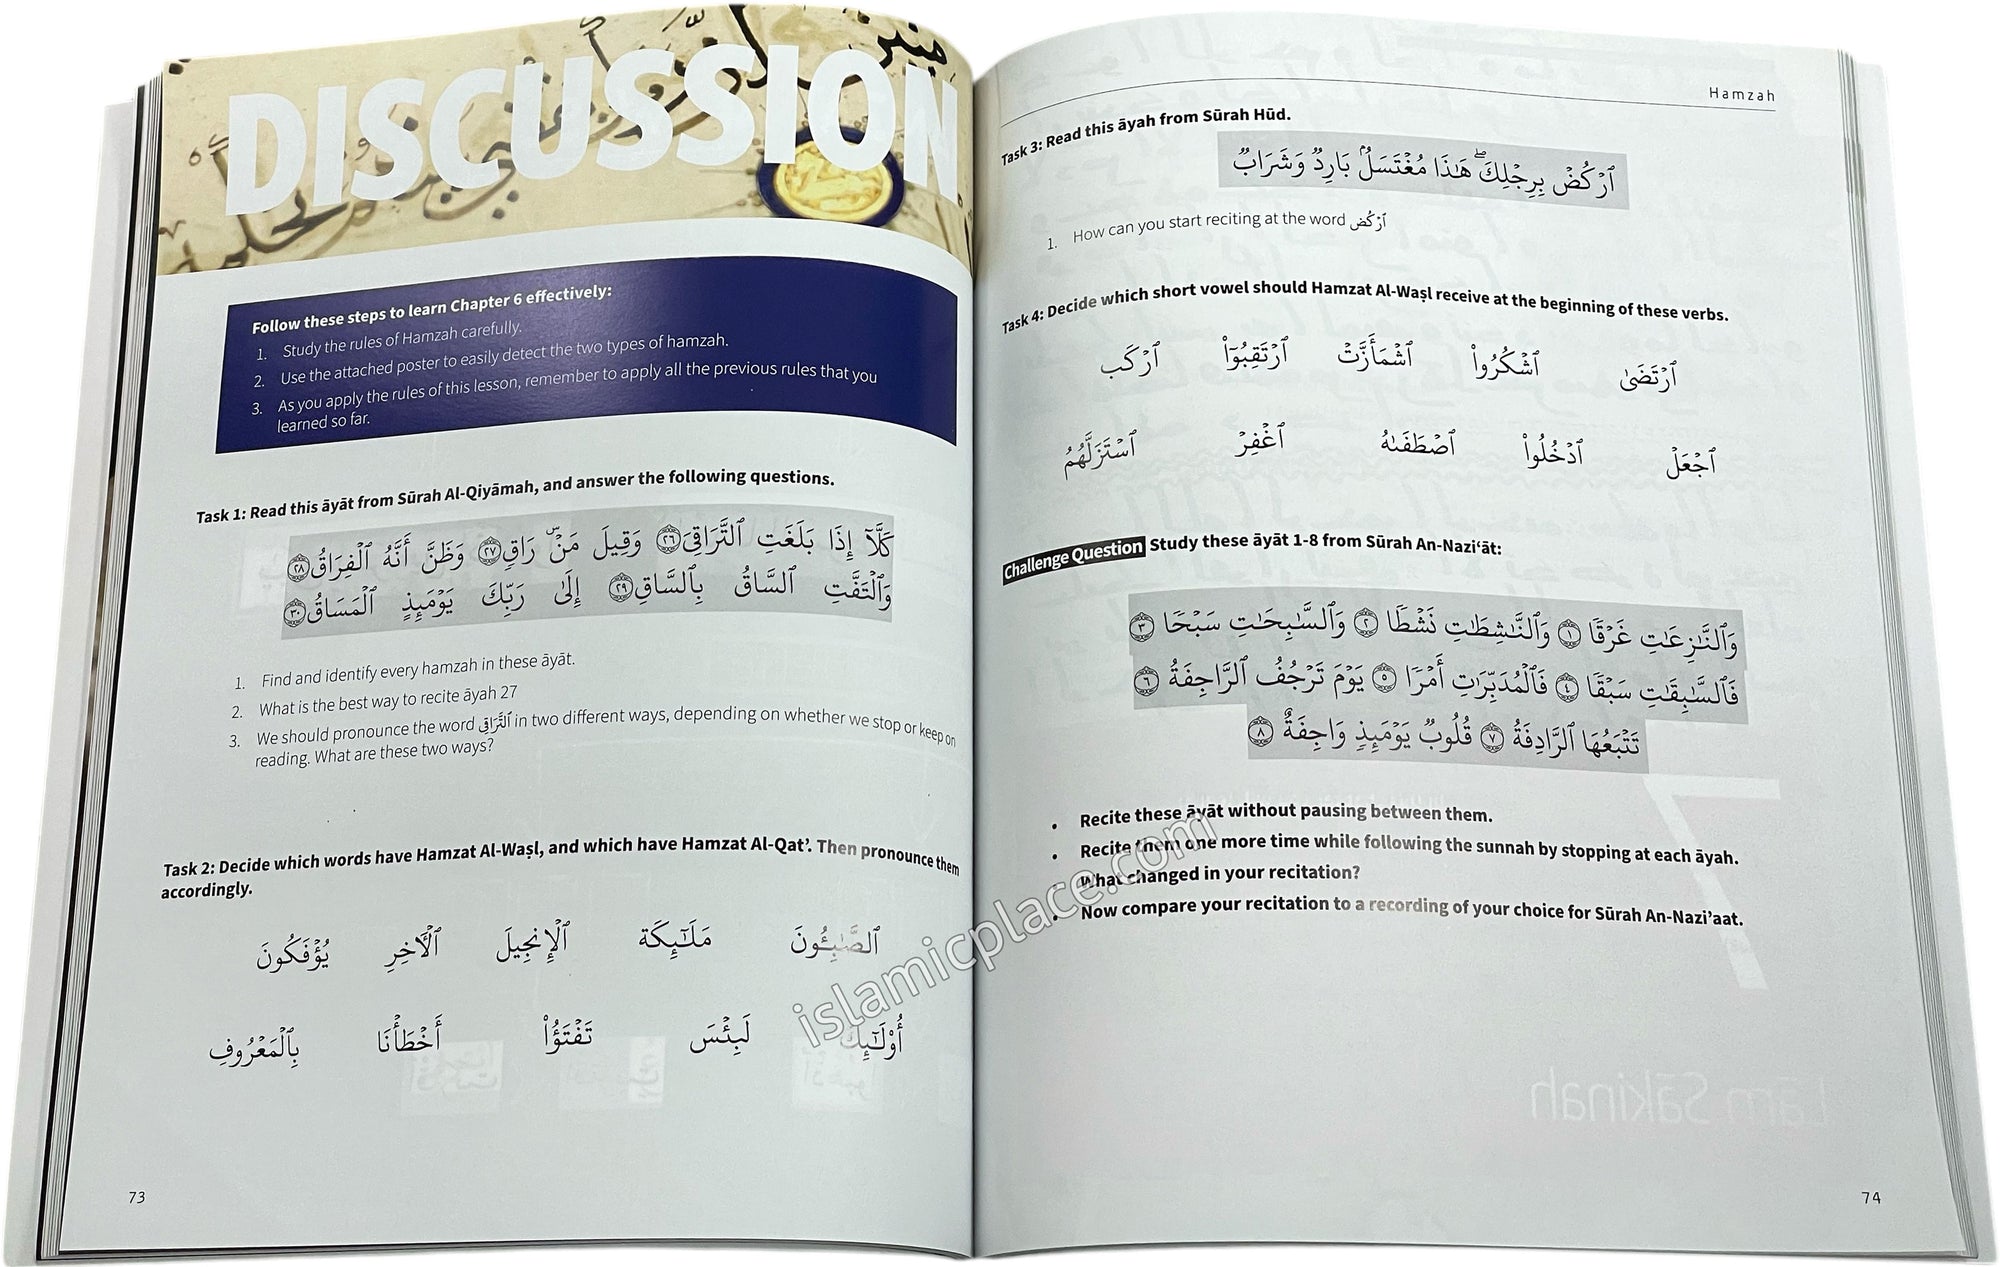 DISCUSSION
Follow these steps to learn Chapter 6 effectively:
1. Study the rules of Hamzah carefully.
2. Use the attached poster to easily detect the two types of hamzah.
3. As you apply the rules of this lesson, remember to apply all the previous rules that you
learned so far.
Task 1: Read this āyāt from Sūrah Al-Qiyāmah, and answer the following questions.
كَلَّآ إِذَا بَلَغَتِ ٱلتَّرَاقِىَ ٢٦ وَقِيلَ مَنْۜ رَاقٍ ٢٧ وَظَنَّ أَنَّهُ ٱلْفِرَاقُ ٢٨
وَٱلْتَفَّتِ ٱلسَّاقُ بِٱلسَّاقِ ٢٩ إِلَىٰ رَبِّكَ يَوْمَئِذٍ ٱلْمَسَاقُ ٣٠
1. Find and identify every hamzah in these āyāt.
2. What is the best way to recite āyah 27
3. We should pronounce the word ٱلتَّرَاقِىَ in two different ways, depending on whether we stop or keep on
reading. What are these two ways?
Task 2: Decide which words have Hamzat Al-Waṣl, and which have Hamzat Al-Qat’. Then pronounce them
accordingly.
ٱلصَّٰبِـُٔونَ مَلَـٰٓئِكَة ٱلْإِنجِيلَ ٱلْـَٔاخِرِ يُؤْفَكُونَ
أُوْلَـٰٓئِكَ لَبِئْسَ تَفْتَؤُاْ أَخْطَأْنَا بِٱلْمَعْرُوفِ
73
Hamzah
Task 3: Read this āyah from Sūrah Hūd.
ٱرْكُضْ بِرِجْلِكَۖ هَٰذَا مُغْتَسَلُۢ بَارِدٌ وَشَرَابٌ
1. How can you start reciting at the word ٱرْكُض
Task 4: Decide which short vowel should Hamzat Al-Waṣl receive at the beginning of these verbs.
ٱرْتَضَىٰ ٱشْكُرُواْ ٱشْمَأَزَّتْ ٱرْتَقِبُوٓاْ ٱرْكَب
ٱجْعَلْ ٱدْخُلُواْ ٱصْطَفَىٰهُ ٱغْفِرْ ٱسْتَزَلَّهُمُ
Challenge Question Study these āyāt 1-8 from Sūrah An-Nazi‘āt:
وَٱلنَّـٰزِعَـٰتِ غَرْقًا ١ وَٱلنَّـٰشِطَـٰتِ نَشْطًا ٢ وَٱلسَّـٰبِحَـٰتِ سَبْحًا ٣
فَٱلسَّـٰبِقَـٰتِ سَبْقًا ٤ فَٱلْمُدَبِّرَٰتِ أَمْرًا ٥ يَوْمَ تَرْجُفُ ٱلرَّاجِفَةُ ٦
تَتْبَعُهَا ٱلرَّادِفَةُ ٧ قُلُوبٌ يَوْمَئِذٍ وَاجِفَةٌ ٨
• Recite these āyāt without pausing between them.
• Recite them one more time while following the sunnah by stopping at each āyah.
What changed in your recitation?
• Now compare your recitation to a recording of your choice for Sūrah An-Nazi’aat.
islamicplace.com
74